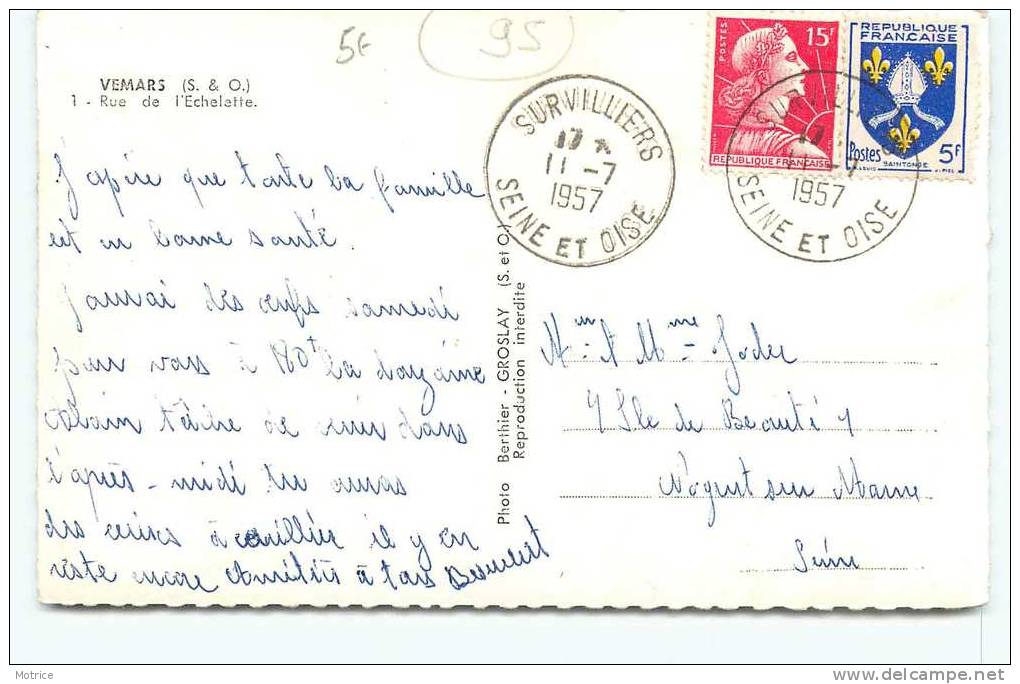 5F
95
VEMARS (S. & O.)
1 - Rue de l'Echelette.
J'espère que toute la famille
est en bonne santé.
J'aurai des œufs samedi
pour vous à 180F la douzaine
Alain tâche de venir dans
l'après-midi tu auras
des cerises à cueillir il y en
reste encore Amitiés à tous
Photo Berthier - GROSLAY (S. et O.)
Reproduction interdite
SURVILLIERS
17 H
11-7
1957
SEINE ET OISE
POSTES
15F
REPUBLIQUE FRANÇAISE
REPUBLIQUE
FRANÇAISE
Postes 5F
SAINTONGE
SURVILLIERS
17
11-7
1957
SEINE ET OISE
Mme
4 Ile de Beauté 4
Nogent sur Marne
Seine
Motrice
www.delcampe.net